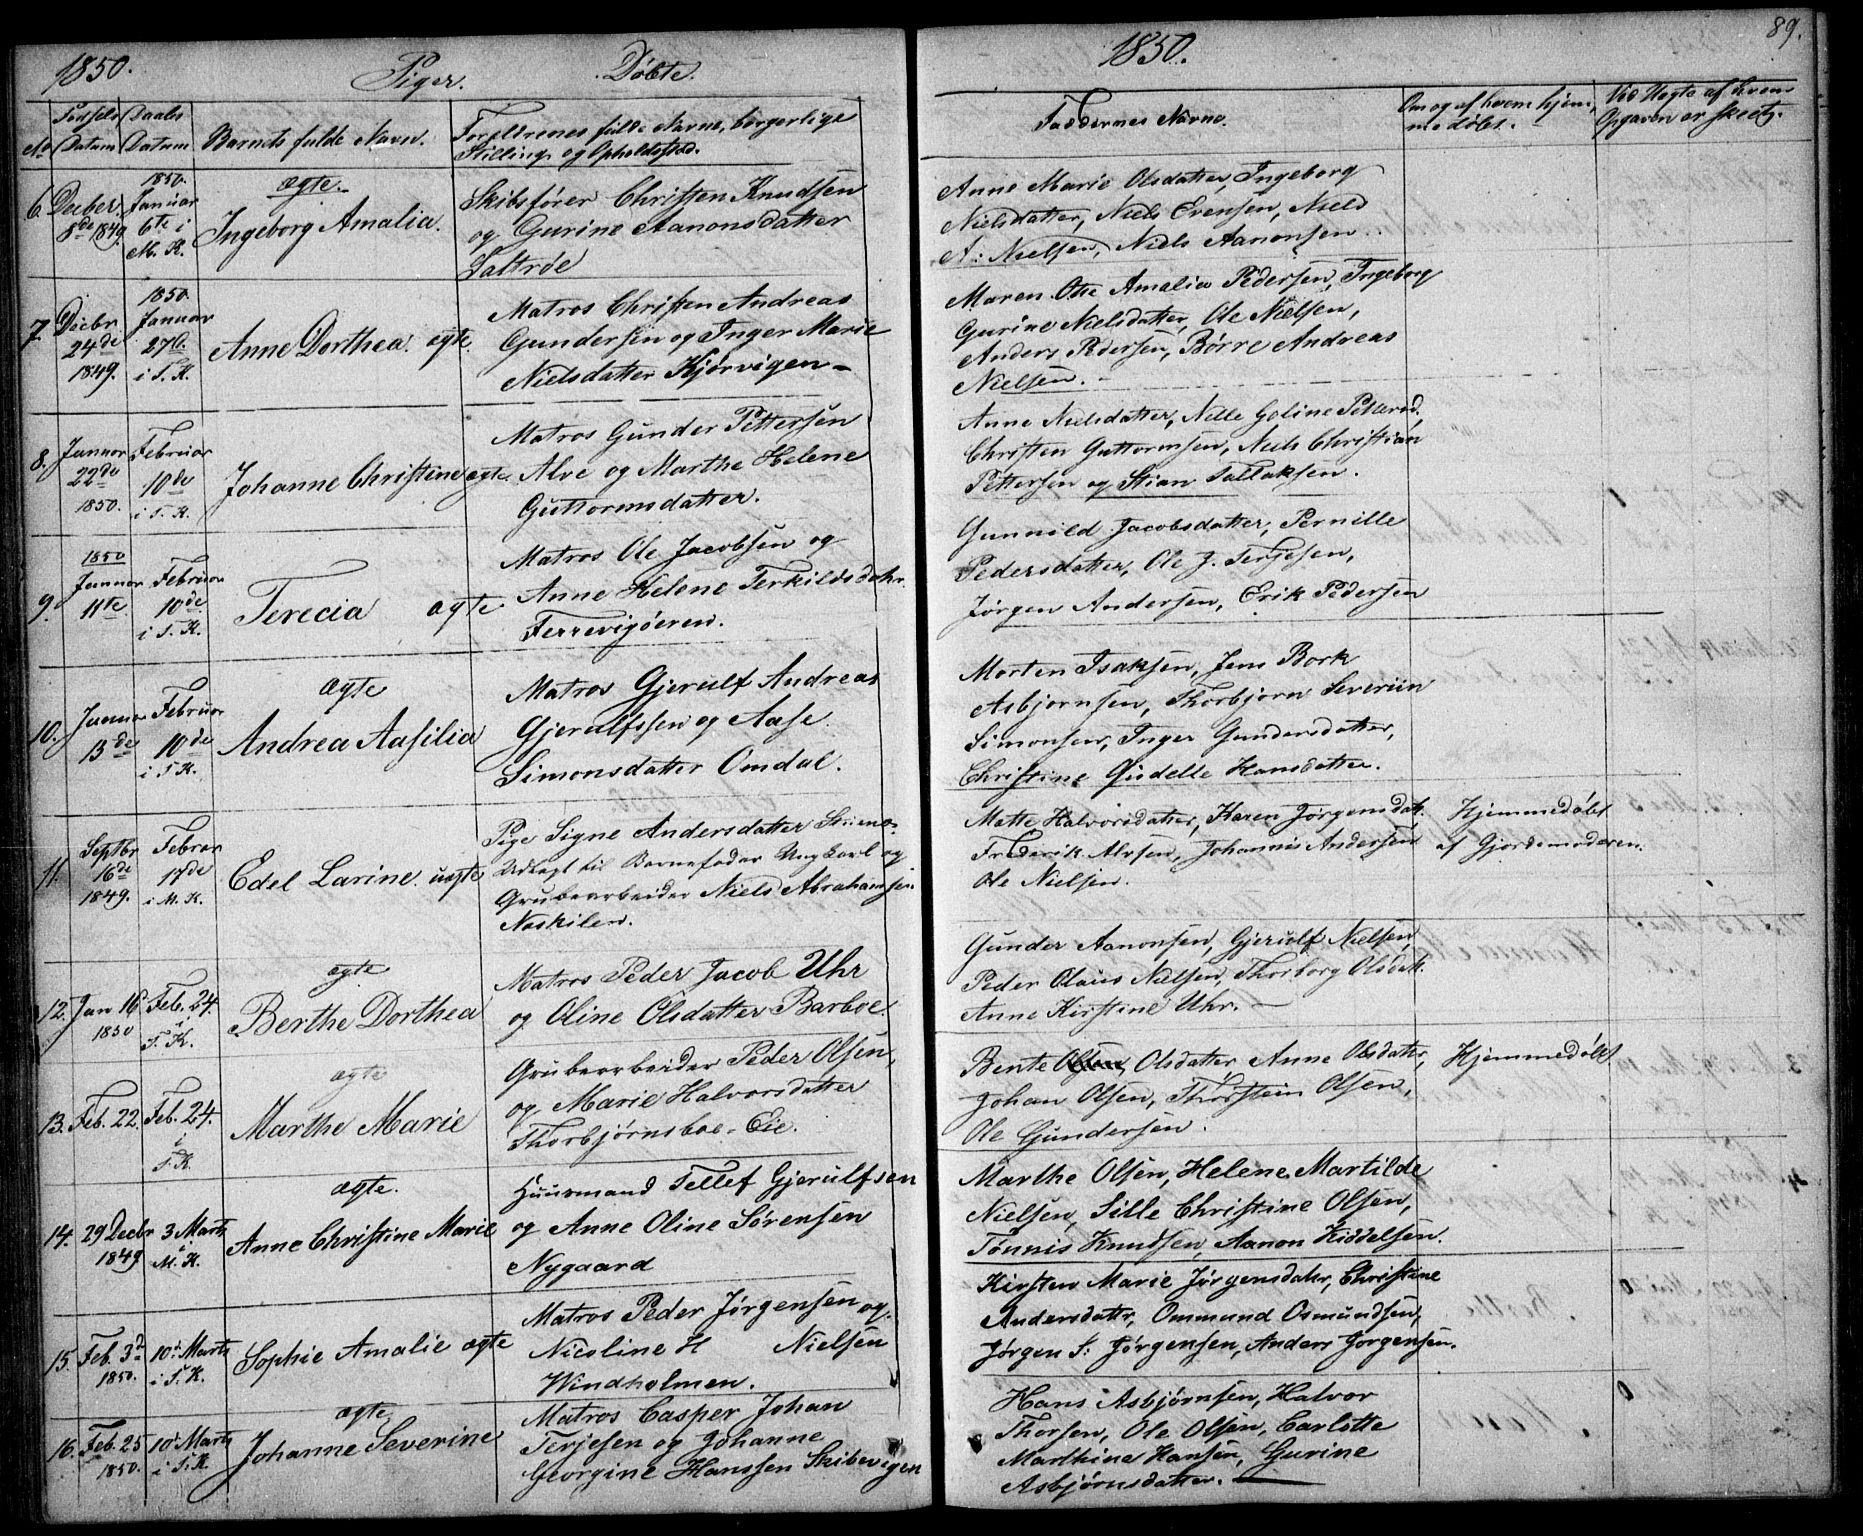 1850.
Piger.
Døbte.
No
Fødsels Datum
Daabs Datum
Barnets fulde Navn.
Forældrenes fulde Navne, borgerlige
Stilling og Opholdssted.
6. Decber 8de 1849.
1850. Januar 6te i M. K.
ægte.
Ingeborg Amalia.
Skibsfører Christen Knudsen
og Gurine Aanonsdatter
Saltrøe
7. Decbr 24de 1849.
1850. Januar 27de i T. K.
Anne Dorthea. ægte.
Matros Christen Andreas
Gundersen og Inger Marie
Nielsdatter Kjørvigen
8. Januar 22de 1850.
Februar 10de i T. K.
Johanne Christine ægte.
Matros Gunder Pettersen
Alve og Marthe Helene
Guttormsdatter.
9. 1850 Januar 11te
Februar 10de i T. K.
Terecia ægte
Matros Ole Jacobsen og
Anne Helene Terkildsdatr.
Ferrevigøeren.
10. Januar 13de
Februar 10de i T. K.
ægte
Andrea Aasilia
Matros Gjerulf Andreas
Gjerulfssen og Aase
Simonsdatter Omdal.
11. Septbr 16de 1849.
Februar 17de i M. K.
Edel Larine. uægte
Pige Signe Andersdatter
Udlagt til Barnefader Ungkarl og
Grubearbeider Niels Abrahamsen
Naskilen.
12. Jan 16 1850
Feb. 24. i T. K.
ægte
Berthe Dorthea
Matros Peder Jacob Uhr
og Oline Olsdatter Barboe.
13. Feb. 22.
Feb. 24. i T. K.
ægte
Marthe Marie
Grubearbeider Peder Olsen,
og Marie Halvorsdatter
Thorbjørnsboe-Eie.
14. 29 Decbr 1849
3 Marts i M. K.
ægte.
Anne Christine Marie
Huusmand Tellef Gjerulfsen
og Anne Oline Sørensen
Nygaard
15. Feb. 3d 1850.
10d Marts i T. K.
Sophie Amalie ægte
Matros Peder Jørgensen og
Nicoline H Nielsen
Windholmen.
16. Feb. 25 1850.
10d Marts i T. K.
ægte
Johanne Severine
Matros Casper Johan
Terjesen og Johanne
Georgine Hanssen Skibevigen
1850.
89.
Faddernes Navne.
Om og af hvem hjemmedøbt.
Ved Uægte af hvem
Opgaven er skeet.
Anne Marie Olsdatter, Ingeborg
Nielsdatter, Niels Evensen, Niels
A: Nielsen, Niels Aanonsen.
Maren Otte Amalia Pedersen, Ingeborg
Gurine Nielsdatter, Ole Nielsen,
Anders Pedersen, Børre Andreas
Nielsen.
Anne Nielsdatter, Nille Goline Pettersd.
Christen Guttormsen, Niels Christian
Pettersen og Stian Tallaksen.
Gunnild Jacobsdatter, Pernille
Pedersdatter, Ole J. Terjesen,
Jørgen Andersen, Erik Pedersen
Morten Isaksen, Jens Bork
Asbjørnsen, Thorbjørn Severiin
Simonsen, Inger Gundersdatter,
Christine Gidelle Hansdatter.
Mette Halvorsdatter, Karen Jørgensdat.
Frederik Alvsen, Johannis Andersen
Ole Nielsen.
Hjemmedøbt
af Gjordemoderen.
Gunder Aanonsen, Gjerulf Nielsen,
Peder Olaus Nielsen, Thorborg Olsdat.
Anne Kirstine Uhr.
Bente Olsen, Olsdatter Anne Olsdatr,
Johan Olsen, Thorstein Olsen,
Ole Gundersen.
Hjemmedøbt
Marthe Olsen, Helene Martilde
Nielsen, Sille Christine Olsen,
Tønnis Knudsen, Aanon Kiddelsen.
Kirsten Marie Jørgensdatr, Christine
Andersdattr, Ommund Osmundsen,
Jørgen S: Jørgensen, Anders Jorgensen.
Hans Asbjørnsen, Halvor
Thorsen, Ole Olsen, Carlotte
Marthine Hansen, Gurine
Asbjørnsdatter.